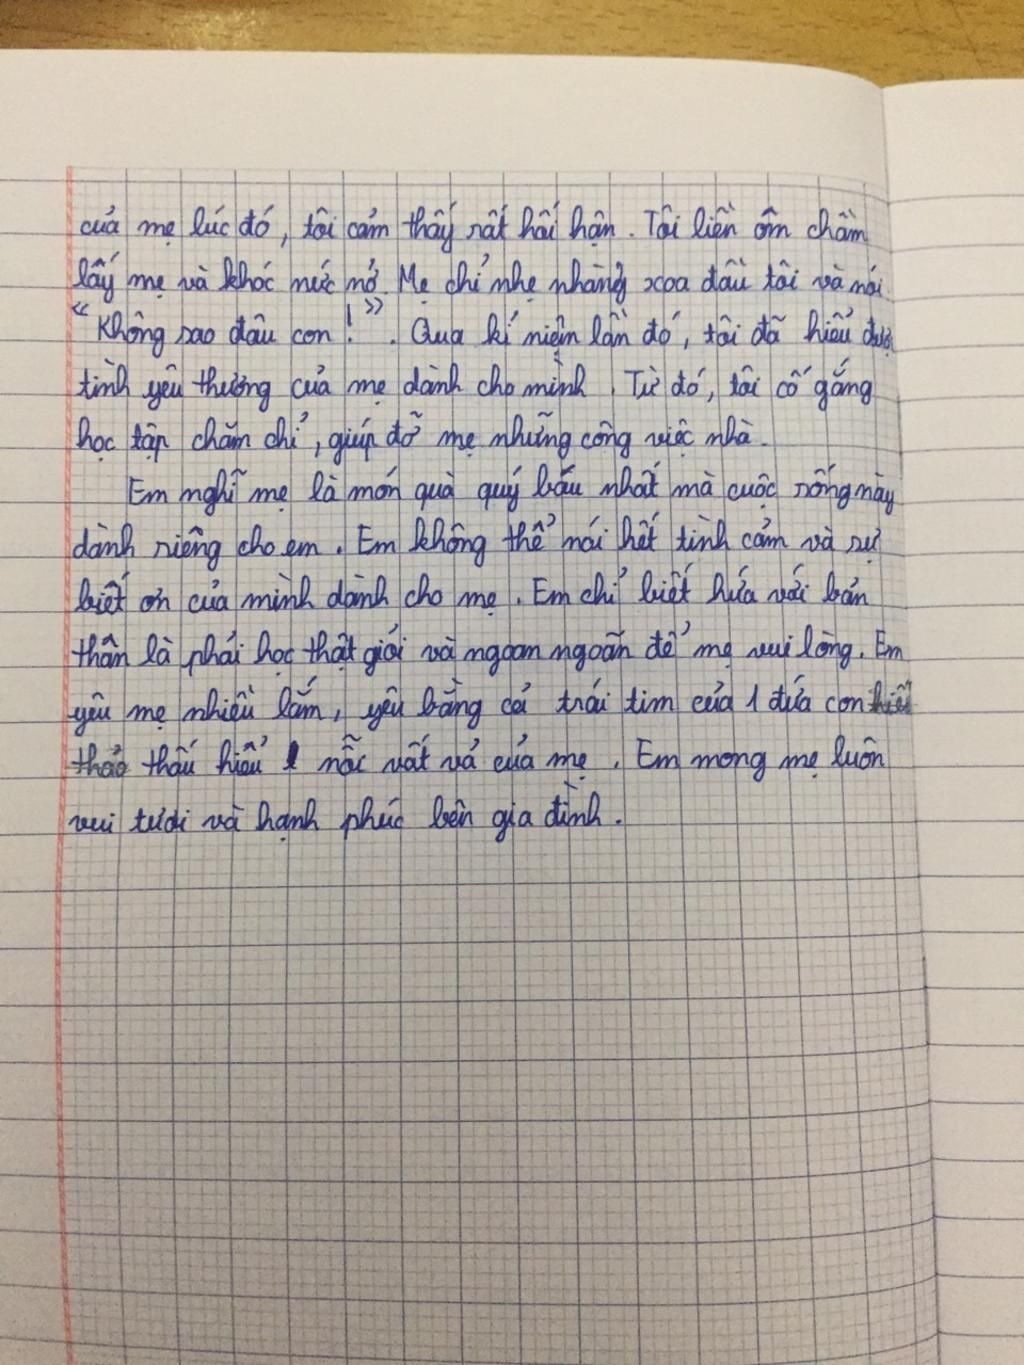 của mẹ lúc đó, tôi cảm thấy rất hối hận. Tôi liền ôm chầm
lấy mẹ và khóc nức nở. Mẹ chỉ nhẹ nhàng xoa đầu tôi và nói
"Không sao đâu con!". Qua kỉ niệm lần đó, tôi đã hiểu được
tình yêu thương của mẹ dành cho mình. Từ đó, tôi cố gắng
học tập chăm chỉ, giúp đỡ mẹ những công việc nhà.
Em nghĩ mẹ là món quà quý báu nhất mà cuộc sống này
dành riêng cho em. Em không thể nói hết tình cảm và sự
biết ơn của mình dành cho mẹ. Em chỉ biết hứa với bản
thân là phải học thật giỏi và ngoan ngoãn để mẹ vui lòng. Em
yêu mẹ nhiều lắm, yêu bằng cả trái tim của 1 đứa con hiếu
thảo thấu hiểu nỗi vất vả của mẹ. Em mong mẹ luôn
vui tươi và hạnh phúc bên gia đình.